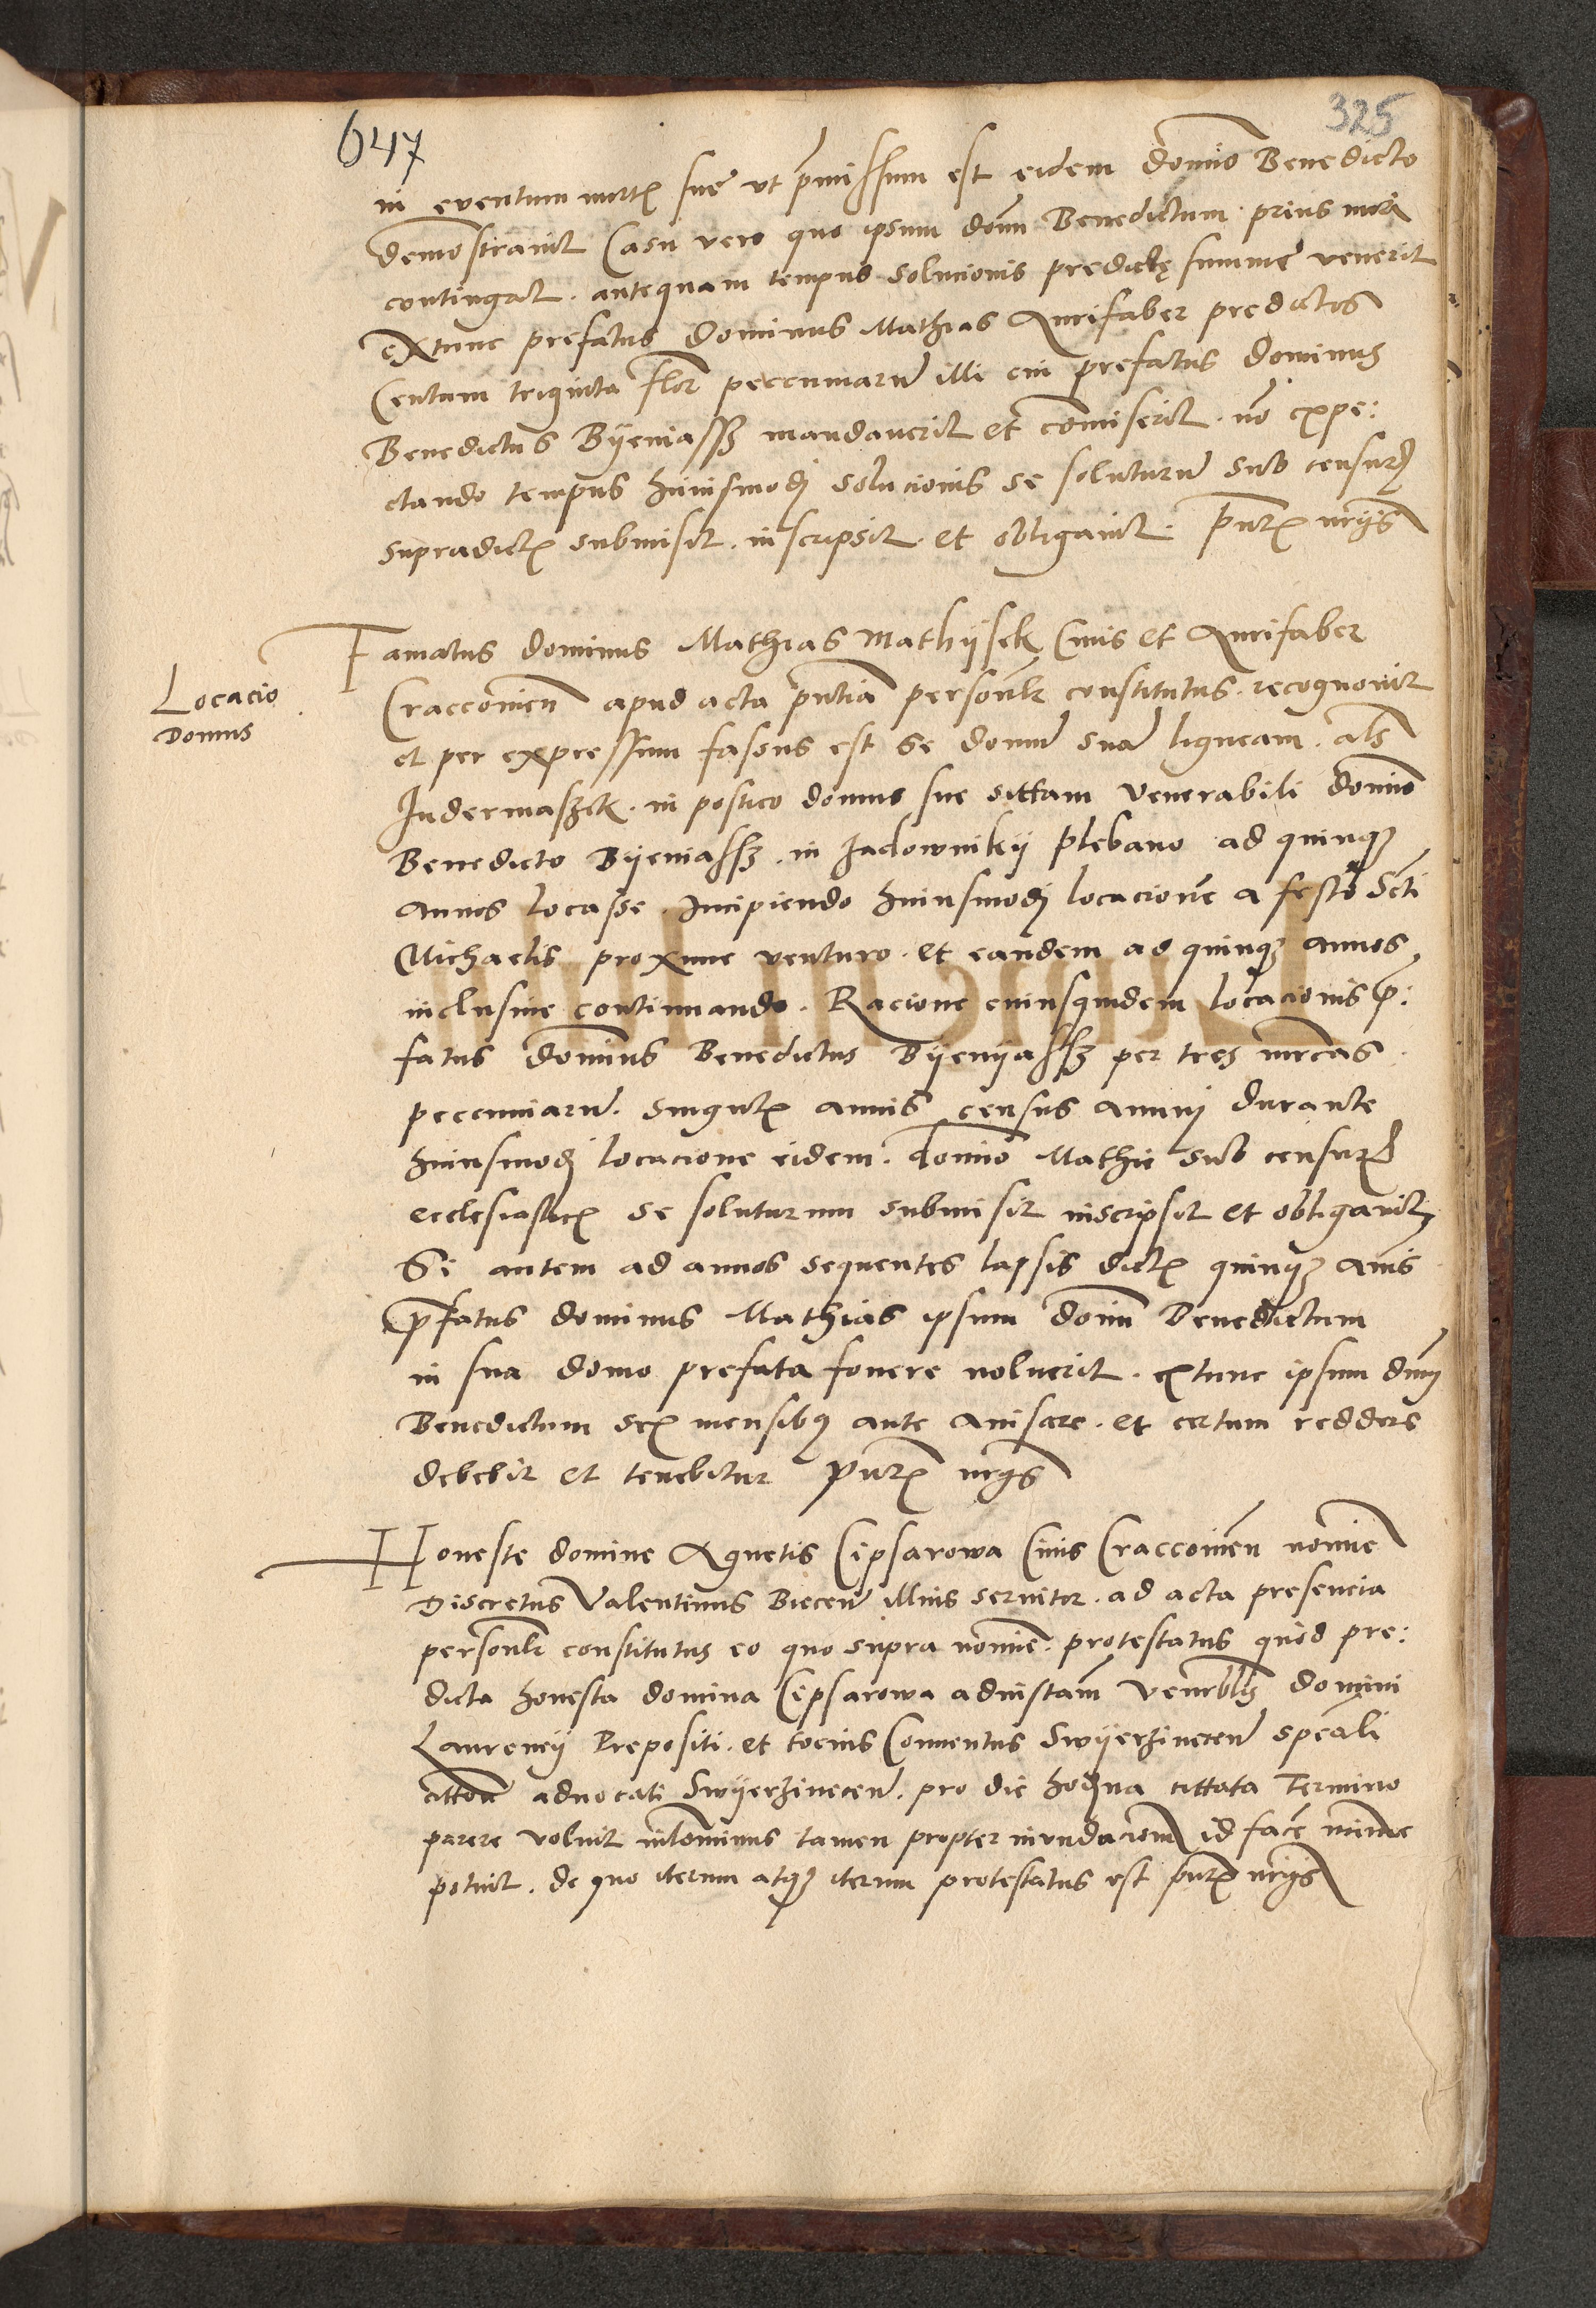 647
325
in eventum mort[is] sue ut p̄missum est eidem domīo Benedicto
demostravit Casu vero quo ipsum dom̄ Benedictum prius mori
contingat. antequam tempus solucionis predictę summe venerit
extunc prefatus Dominus Mathias Aurifaber predictos
Centum triginta flor peccuniarū illi cui prefatus Dominus
Benedictus Byeniassz mandaverit et comiserit. nō expe:
ctando tempus huiusmodi solucionis se soluturū sub censur[is]
supradict[is] submisit. inscripsit. et obligavit. pñt[ibus]
Famatus Dominus Mathias Mathysek Civis et Aurifaber
Locacio
Domus
Craccovieñ apud acta pñtia personlr constitutus. recognovit
et per expressum fassus est se domū suā ligneam. als
Indermaszek. in postico domus sue sittam Venerabili domīo
Benedicto Byeniassz. in Jadownikij plebano ad quinq[ue]
annos locasse. Incipiendo huiusmodi locacionē a festo Scti
Michaelis proxime venturo. et eandem ad quinq[ue] annos
inclusive continuando. Racione cuiusquidem locacionis p̄:
fatus Dominus Benedictus Byenyassz per tres mrcas
peccuniarū. singul[is] annis census annui durante
huiusmodi locacione eidem. domīo Mathie sub censur[is]
ecclesiastic[is] se soluturum submisit inscripsit et obligavit
Si autem ad annos sequentes lapsis dict[is] quinq[ue] anīs
p̄fatus dominus Mathias ipsum dom̄ Benedictum
in sua domo prefata fovere noluerit. extunc ipsum dnm
Benedictum sex mensib[us] ante avisare. et certum reddere
debebit et tenebitur pñt[ibus]
Honeste domine Agnetis Cipsarowa Civis Craccovieñ nomīe
Discretus Valentinus Bieceñ illius servitor. ad acta presencia
personlr constitutus eo quo supra nomīe. protestatus quod pre:
dicta honesta domina Cipsarowa ad instam̄ venerblis domini
Laurencij Prepositi. et tocius Conventus Swyerzineceñ speāli
advocati Swyerzineceñ. pro die hodīna cittata Termino
parere voluit nilominus tamen propter inundacionē id facē mīme
potuit. de quo iterum atq[ue] iterum protestatus est pñt[ibus]